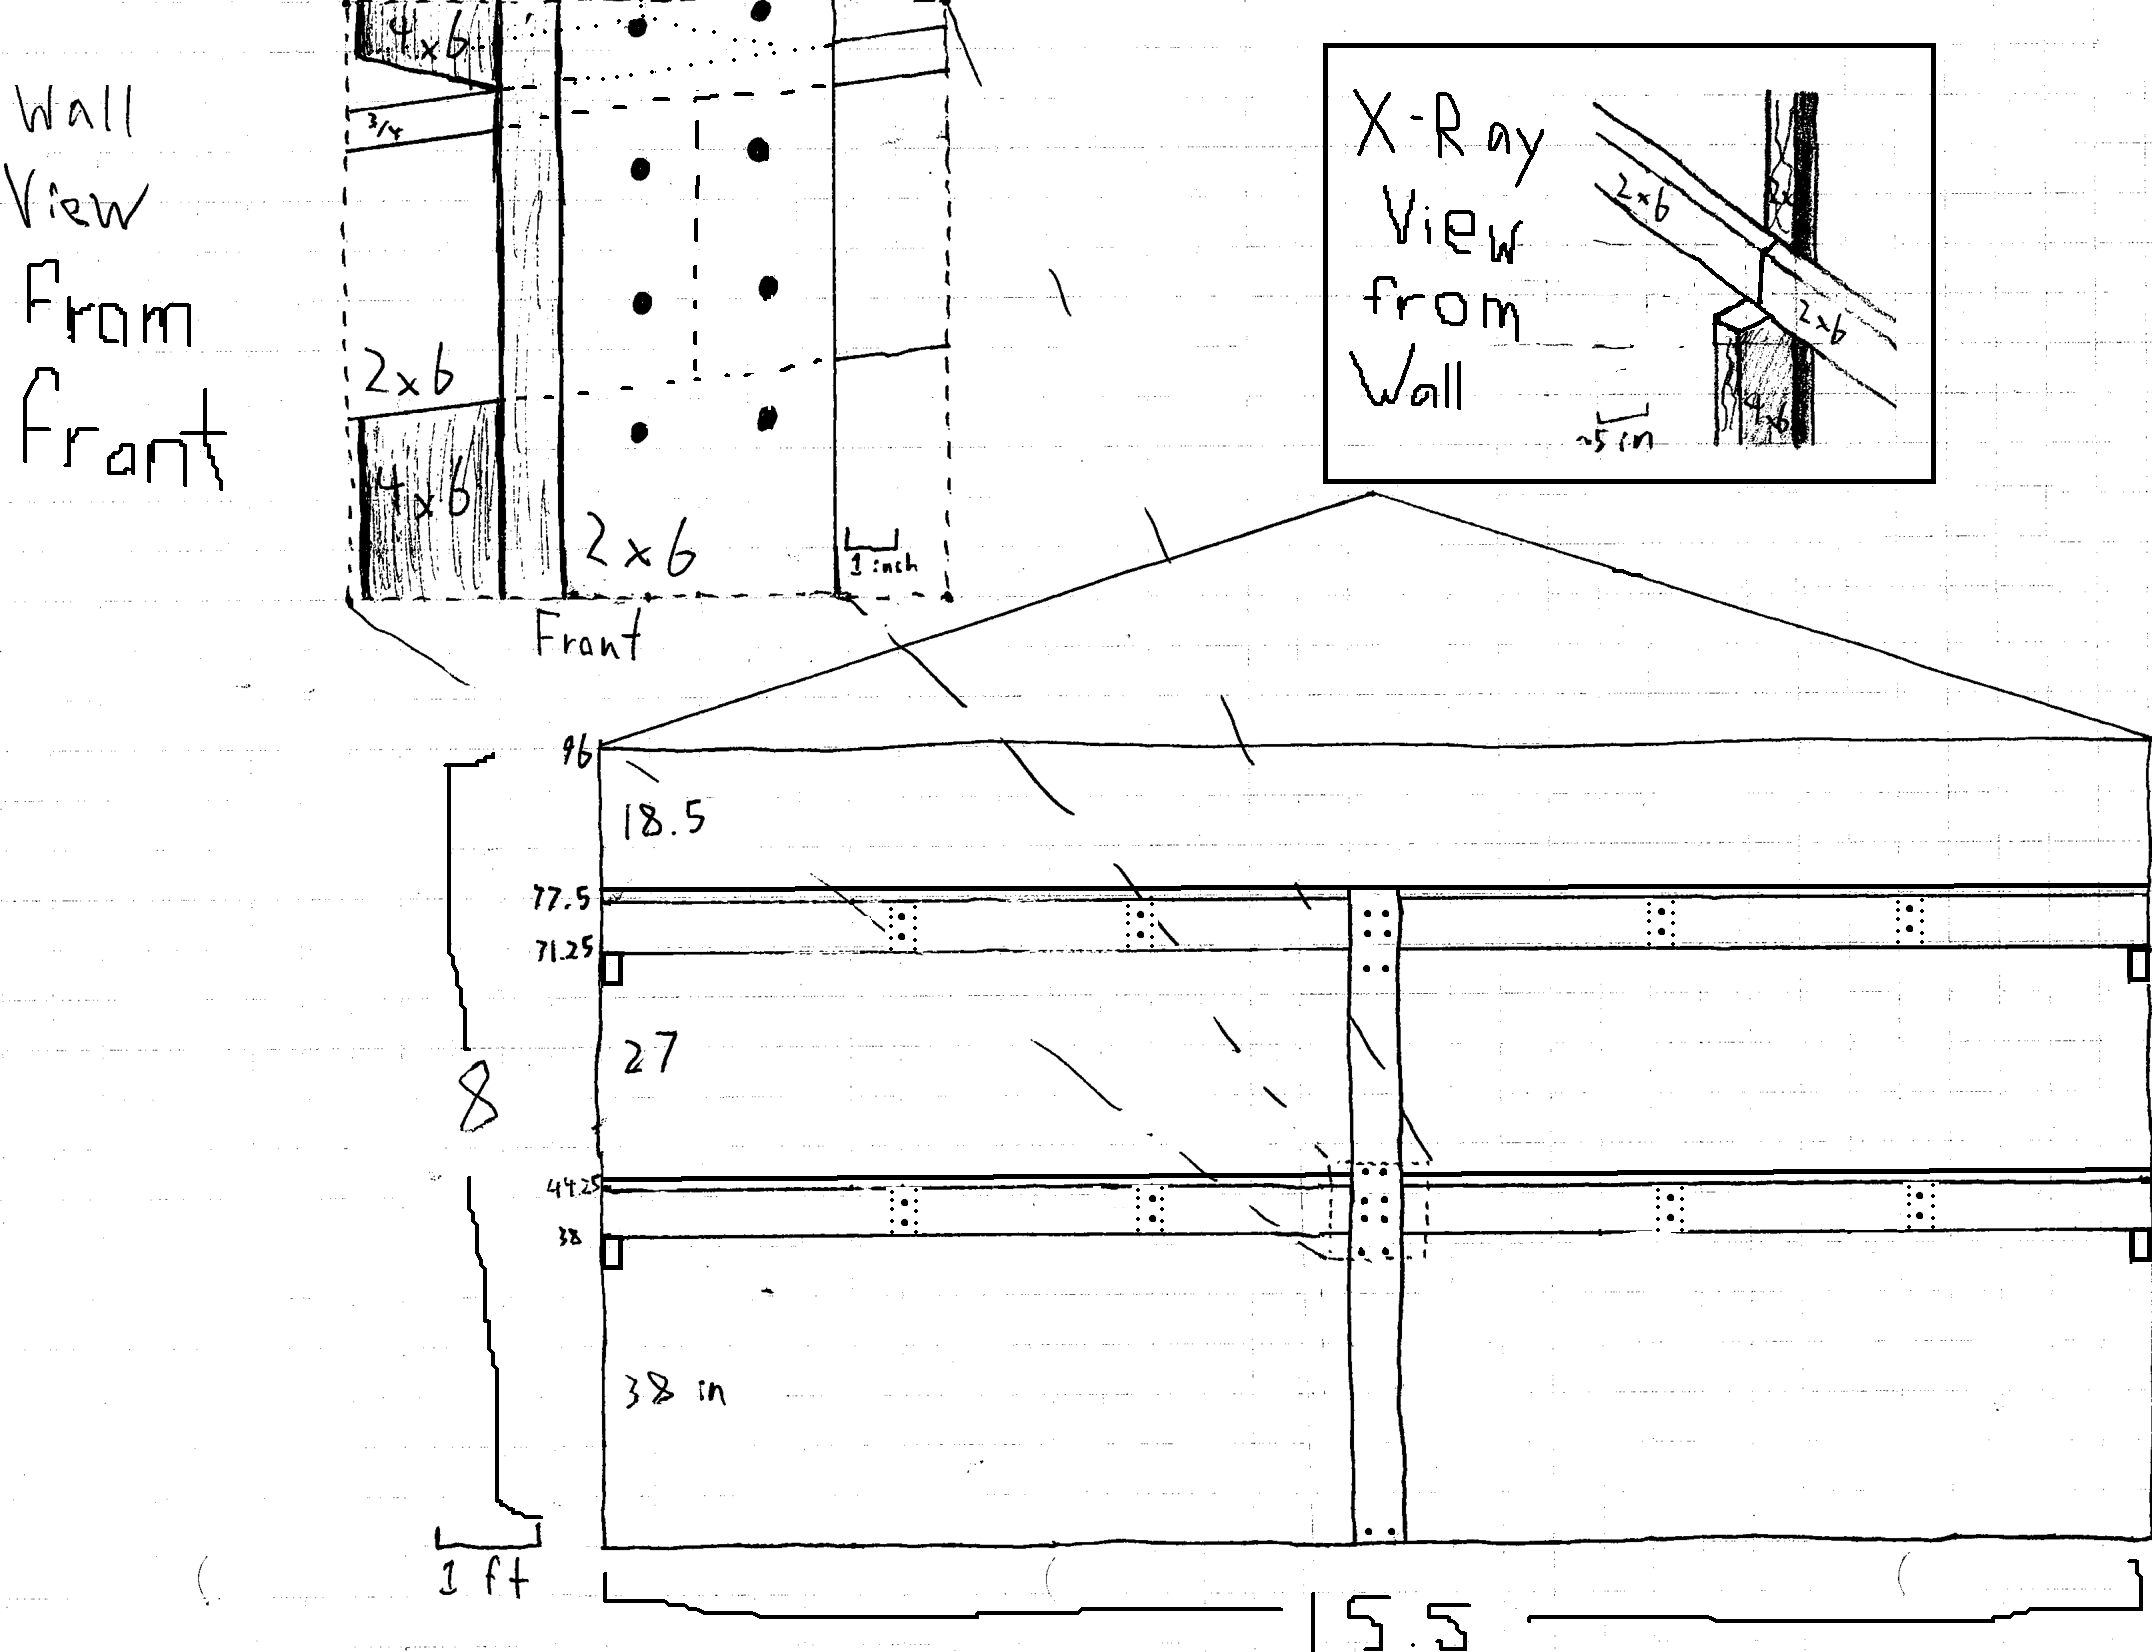 Wall
View
From
Front
4x6
3/4
2x6
4x6
2x6
1 inch
Front
X-Ray
View
from
Wall
2x6
2x6
4x6
~5 in
96
18.5
77.5
71.25
27
8
44.25
38
38 in
1 ft
15.5